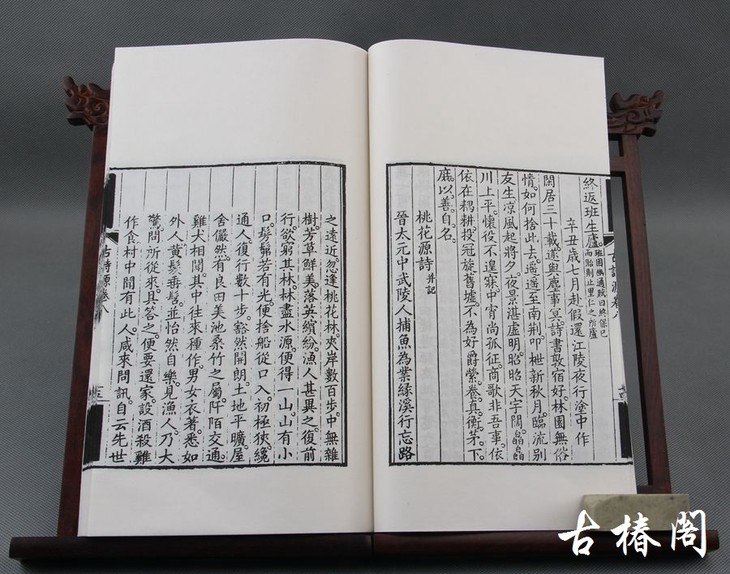 終返班生廬。班固幽通賦曰終保己
而貽則止里仁之所廬
辛丑歲七月赴假還江陵夜行塗中作
閑居三十載。遂與塵事冥。詩書敦宿好。林園無俗
情。如何捨此去。遙遙至南荆。叩枻新秋月。臨流别
友生。涼風起將夕。夜景湛虛明。昭昭天宇闊。皛皛
川上平。懷役不遑寐。中宵尚孤征。商歌非吾事。依
依在耦耕。投冠旋舊墟。不為好爵縈。養真衡茅下。
庶以善自名。
桃花源詩 并記
晉太元中武陵人捕魚為業緣溪行忘路
之遠近。忽逢桃花林。夾岸數百步。中無雜
樹。芳草鮮美。落英繽紛。漁人甚異之。復前
行。欲窮其林。林盡水源。便得一山。山有小
口。髣髴若有光。便捨船從口入。初極狹。纔
通人。復行數十步。豁然開朗。土地平曠。屋
舍儼然。有良田美池桑竹之屬。阡陌交通。
雞犬相聞。其中往來種作。男女衣著。悉如
外人。黃髮垂髫。並怡然自樂。見漁人。乃大
驚。問所從來。具答之。便要還家。設酒殺雞
作食。村中聞有此人。咸來問訊。自云先世
古詩源卷八
古椿閣